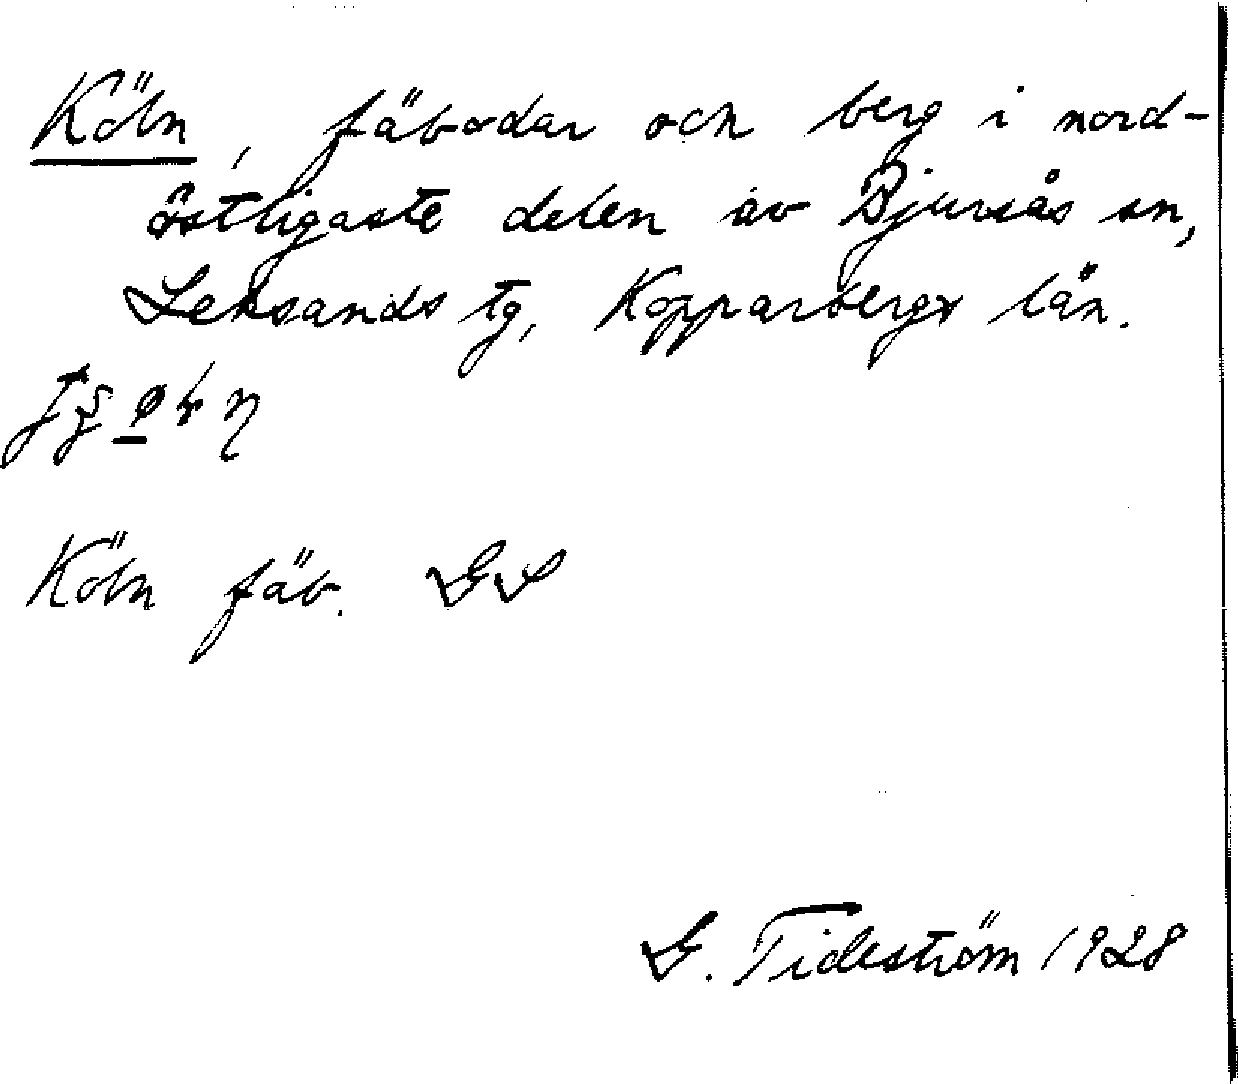 Köln, fäbodar och berg i nord-
östligaste delen av Bjursås sn,
Leksands tg, Kopparbergs län.
Köln fäb. GS
G. Tideström 1928